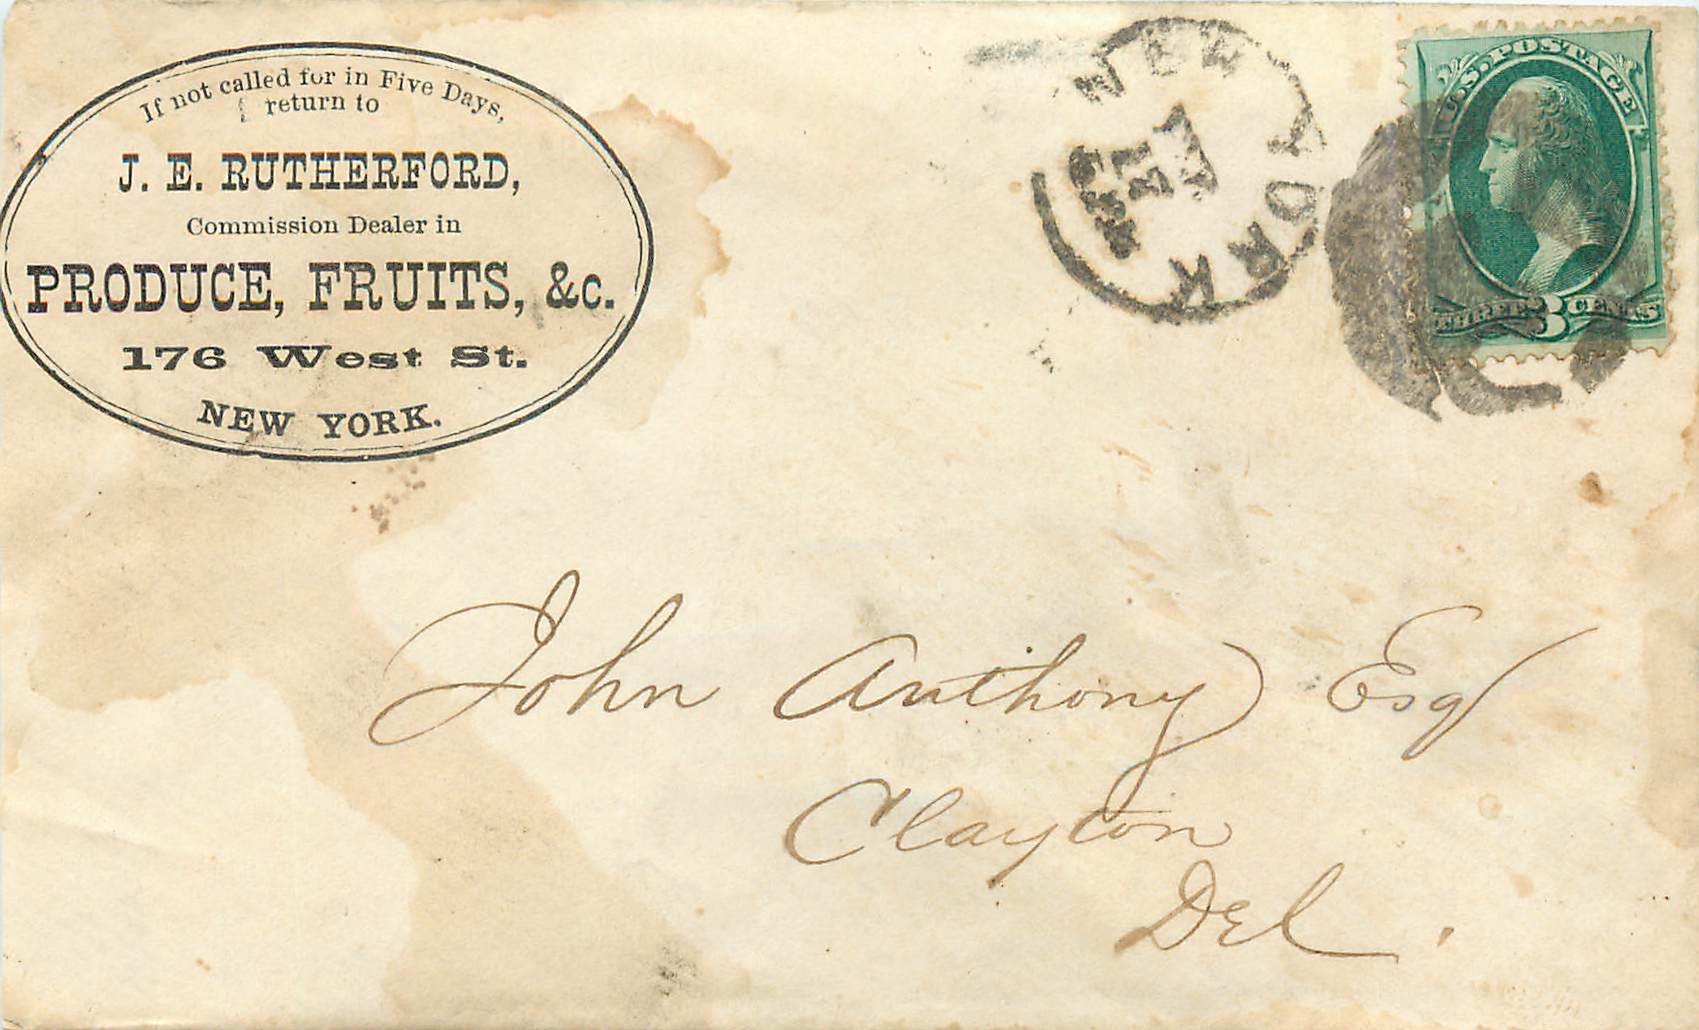 If not called for in Five Days,
return to
J. E. RUTHERFORD,
Commission Dealer in
PRODUCE, FRUITS, &c.
176 West St.
NEW YORK.
NEW YORK
U.S. POSTAGE
THREE 3 CENTS
John Anthony Esq
Clayton
Del.